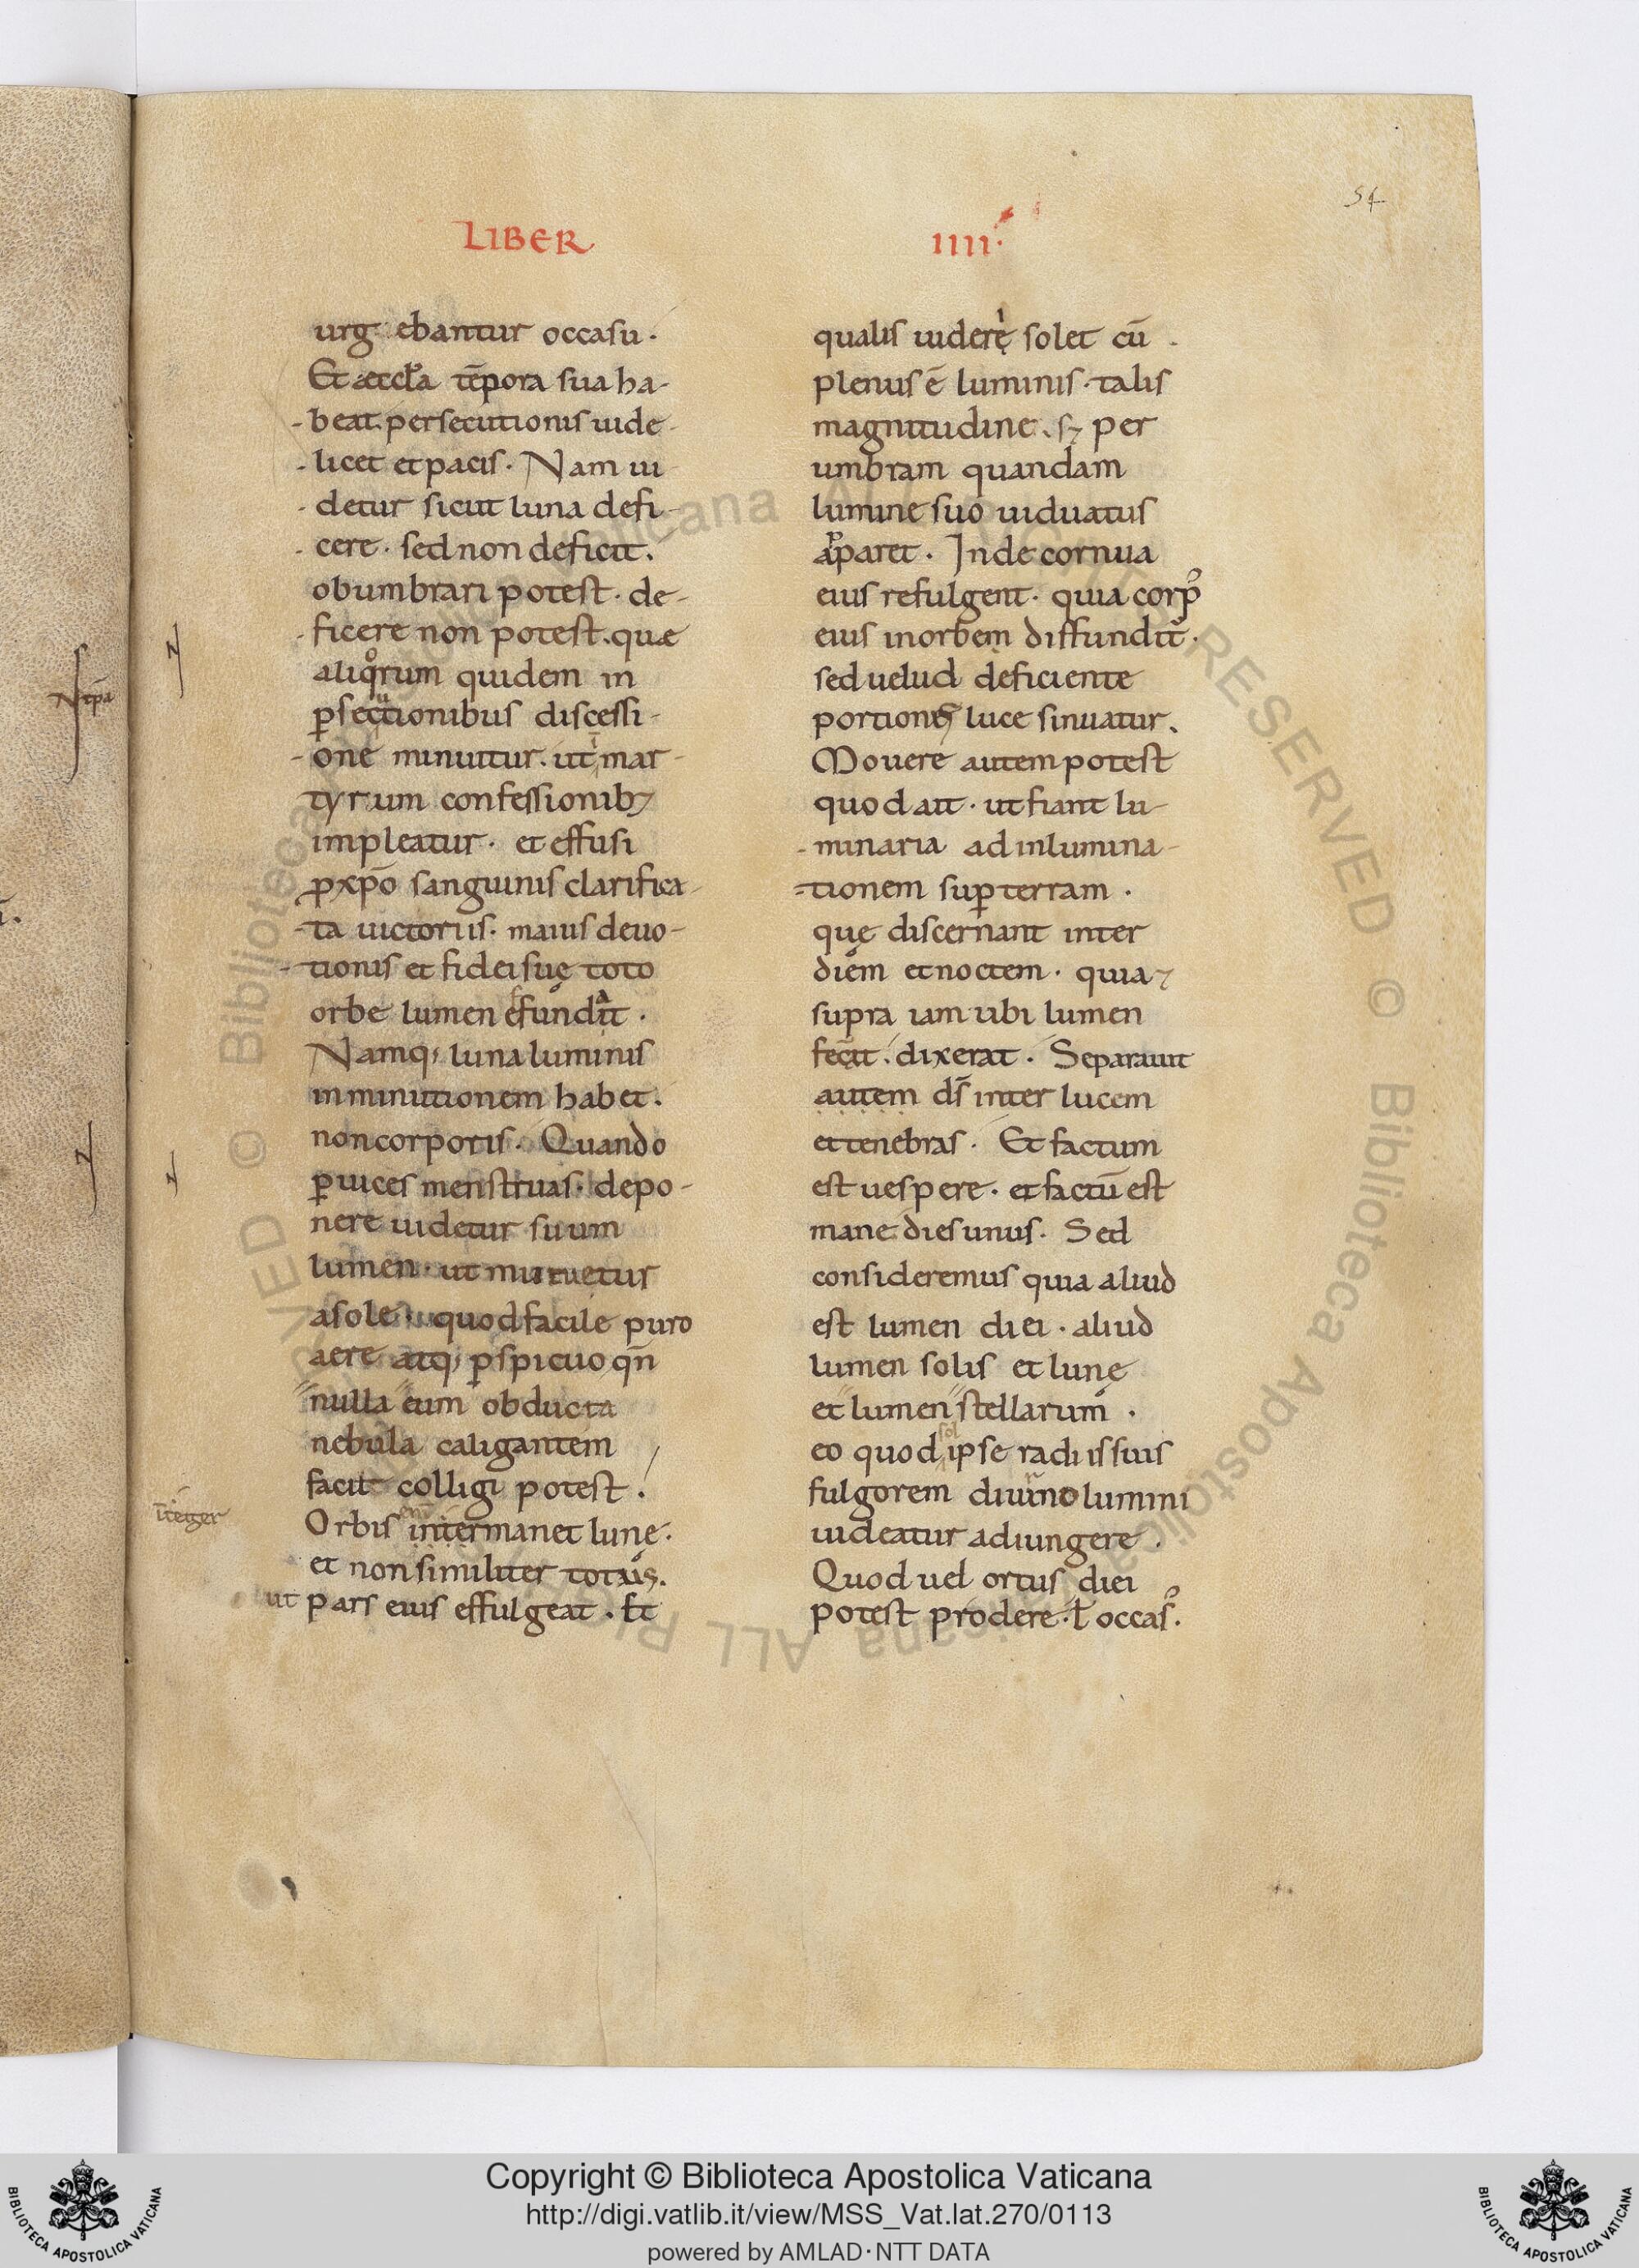 54
LIBER
IIII·
urgebantur occasu·
Et aeccl̄a tēpora sua ha-
beat. persecutionis uide-
licet et pacis· Nam ui-
detur sicut luna defi-
cere· sed non deficit.
obumbrari potest· de-
ficere non potest. quae
aliqͦrum quidem in
ꝑsecutionibus discessi-
one minuitur. ut mar-
tyrum confessionibꝫ
impleatur· et effusi
ꝓ xp̄o sanguinis clarifica-
ta uictoriis· maius deuo-
tionis et fidei suę toto
orbe lumen effundat·
Namq; luna luminis
inminutionem habet.
non corporis. Quando
ꝑ uices menstruas· depo-
nere uidetur suum
lumen· ut mutuetur
a sole· quod facile puro
aere atq; ꝑspicuo qn̄
nulla eum obducta
nebula caligantem
facit colligi potest.
īteger
Orbis inter manet lunę·
et non similiter totus.
ut pars eius effulgeat. Et
qualis uideri solet cū
plenus ē luminis· talis
magnitudine. sꝫ per
umbram quandam
lumine suo uiduatus
apparet. Inde cornua
eius refulgent· quia corpꝰ
eius in orbem diffunditᷣ·
sed uelud deficiente
portiones luce sinuatur.
Mouere autem potest
quod ait· ut fiant lu-
minaria ad inlumina-
tionem suꝑ terram·
que discernant inter
diem et noctem· quia ⁊
supra iam ubi lumen
fecit. dixerat. Separauit
autem d̄s inter lucem
et tenebras. Et factum
est uespere· et factū est
mane dies unus. Sed
consideremus quia aliud
est lumen diei· aliud
lumen solis et lunę
et lumen stellarum·
sol
eo quod ipse radiis suis
fulgorem diurno lumini
uideatur adiungere.
Quod uel ortus diei
potest prodere. ł occasꝰ.
Copyright © Biblioteca Apostolica Vaticana
http://digi.vatlib.it/view/MSS_Vat.lat.270/0113
powered by AMLAD·NTT DATA
BIBLIOTECA APOSTOLICA VATICANA
BIBLIOTECA APOSTOLICA VATICANA